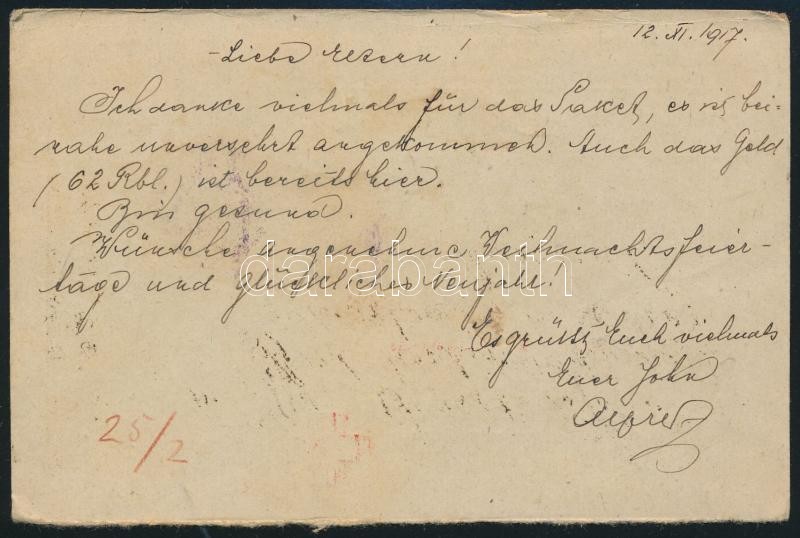 12. XI. 1917.
Liebe Eltern!
Ich danke vielmals für das Paket, es ist bei-
nahe unversehrt angekommen. Auch das Geld
(62 Rbl.) ist bereits hier.
Bin gesund.
Wünsche angenehme Weihnachtsfeier-
täge und glückliches Neujahr!
darabanth
Es grüßt Euch vielmals
Euer Sohn
Alfred
25/2